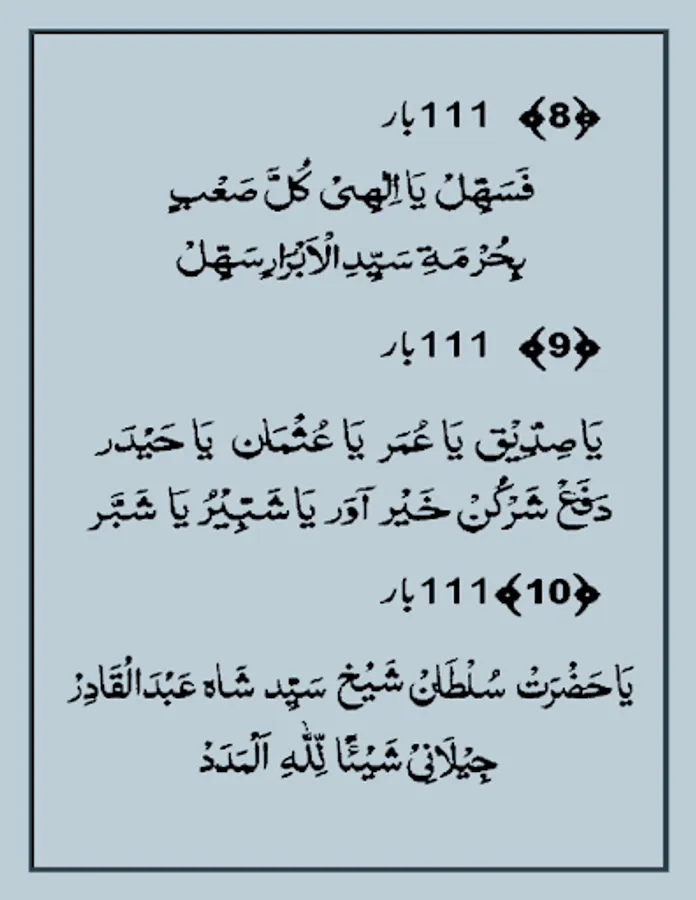 ﴿8﴾ 111 بار
فَسَهِّلْ يَا اِلٰهِىْ كُلَّ صَعْبٍ
بِحُرْمَةِ سَيِّدِ الْاَبْرَارِ سَهِّلْ
﴿9﴾ 111 بار
يَا صِدِّيْق يَا عُمَر يَا عُثْمَان يَا حَيْدَر
دَفَعْ شَرْ كُنْ خَيْر آوَر يَا شَبِّيْرُ يَا شَبَّر
﴿10﴾ 111 بار
يَا حَضْرَتْ سُلْطَانْ شَيْخ سَيِّد شَاه عَبْدَالْقَادِرْ
جِيْلَانِىْ شَيْئًا لِلّٰهِ اَلْمَدَدْ